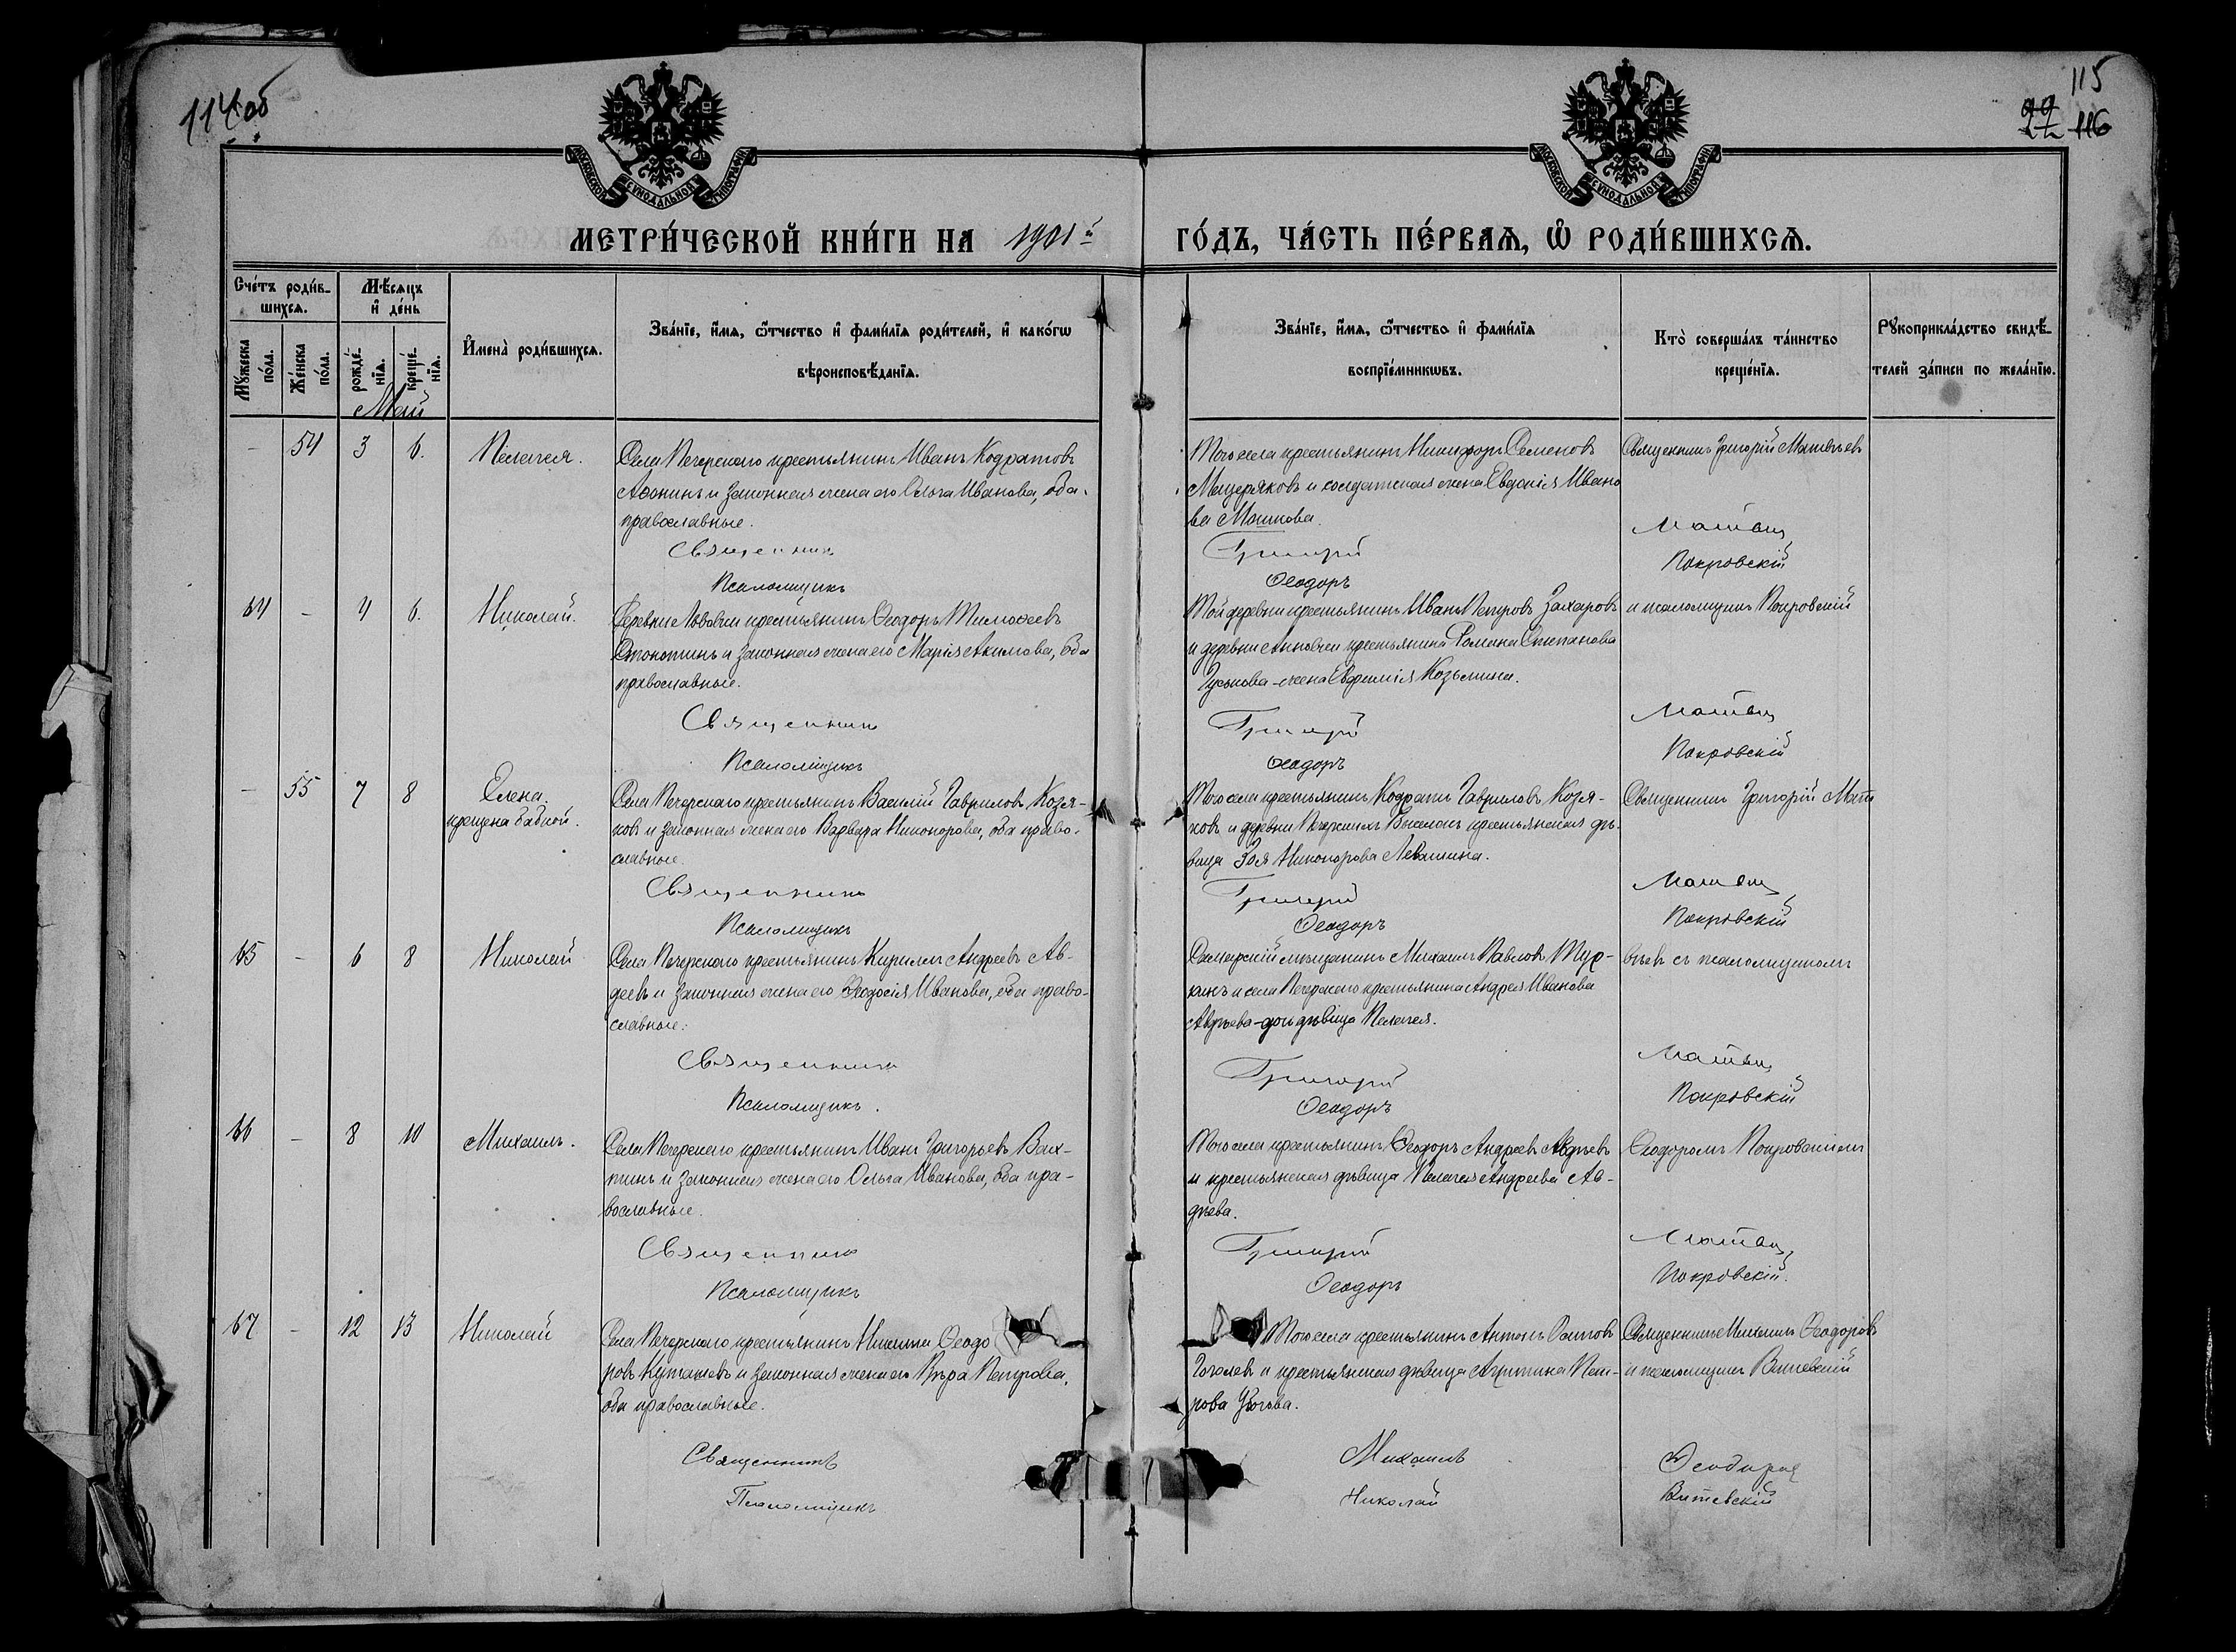 114об
115
22 116
МОСКОВСКОЙ СѴНОДАЛЬНОЙ ТИПОГРАФІИ
МОСКОВСКОЙ СѴНОДАЛЬНОЙ ТИПОГРАФІИ
МЕТРИ́ЧЕСКОЙ КНИ́ГИ НА 1901й
ГО́ДЪ, ЧА́СТЬ ПЕ́РВАѦ, Ѡ҆ РОДИ́ВШИХСѦ.
Сче́тъ роди́в-
шихсѧ.
Мꙋ́жеска по́ла.
Же́нска по́ла.
Мѣ́сѧцъ
и҆ де́нь
рожде́-нїѧ.
креще́-нїѧ.
Май
И҆мена̀ роди́вшихсѧ.
Зва́нїе, и҆́мѧ, ѻ҆́тчество и҆ фами́лїѧ роди́телей, и҆ како́гѡ
вѣроисповѣ́данїѧ.
Зва́нїе, и҆́мѧ, ѻ҆́тчество и҆ фами́лїѧ
воспрїе́мникѡвъ.
Кто̀ соверша́лъ та́инство
креще́нїѧ.
Рꙋкоприкла́дство свидѣ́-
телей за́писи по жела́нїю.
– 54 3 6. Пелагея.
Села Печерскаго крестьянинъ Иванъ Кодратовъ
Аѳонинъ и законная жена его Ольга Иванова, оба
православные.
Священникъ
Псаломщикъ
Того села крестьянинъ Никифоръ Семеновъ
Мещеряковъ и солдатская жена Евдокія Ивано
ва Мошкова.
Григорій
Ѳеодоръ
Священникъ Григорій Матвѣевъ
Матвѣевъ
Покровскій
64 – 4 6. Николай.
Деревни Львовки крестьянинъ Ѳеодоръ Тимоѳеевъ
и законная жена его Марія Акимова, оба
православные.
Священникъ
Псаломщикъ
Той деревни крестьянинъ Иванъ Петровъ Захаровъ
и деревни Анновки крестьянина Романа Степанова
Гуськова – жена Евфимія Козьмина.
Григорій
Ѳеодоръ
и псаломщикъ Покровскій
Матвѣевъ
Покровскій
– 55 7 8 Елена.
крещена бабкой.
Села Печерскаго крестьянинъ Василій Гавриловъ Козя-
ковъ и законная жена его Варвара Никонорова, оба право-
славные.
Священникъ
Псаломщикъ
Того села крестьянинъ Кодратъ Гавриловъ Козя-
ковъ и деревни Печерскихъ Выселокъ крестьянская дѣ-
вица Зоя Никонорова Левашина.
Григорій
Ѳеодоръ
Священникъ Григорій Матв
Матвѣевъ
Покровскій
65 – 6 8 Николай
Села Печерскаго крестьянинъ Кириллъ Андреевъ Ав-
деевъ и законная жена его Ѳеодосія Иванова, оба право-
славные.
Священникъ
Псаломщикъ.
Самарскій мѣщанинъ Михаилъ Павловъ Тур-
кинъ и села Печерскаго крестьянина Андрея Иванова
Авдѣева – дочь дѣвица Пелагея.
Григорій
Ѳеодоръ
вѣевъ съ псаломщикомъ
Матвѣевъ
Покровскій
66 – 8 10 Михаилъ.
Села Печерскаго крестьянинъ Иванъ Григорьевъ Вах-
тинъ и законная жена его Ольга Иванова, оба пра-
вославные.
Священникъ
Псаломщикъ
Того села крестьянинъ Ѳеодоръ Андреевъ Авдѣевъ
и крестьянская дѣвица Пелагея Андреева Ав-
дѣева.
Григорій
Ѳеодоръ
Ѳеодоромъ Покровскимъ
Матвѣевъ
Покровскій.
67 – 12 13 Николай
Села Печерскаго крестьянинъ Никита Ѳеодо
ровъ Куташевъ и законная жена его Вѣра Петрова,
оба православные.
Священникъ
Псаломщикъ
Того села крестьянинъ Антонъ Осиповъ
Гоголевъ и крестьянская дѣвица Агрипина Пет-
рова Убогова.
Михаилъ
Николай
Священникъ Михаилъ Ѳеодоровъ
и псаломщикъ Витевскій
Ѳеодоровъ
Витевскій